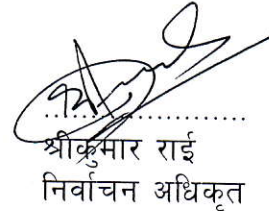 श्रीकुमार राई
निर्वाचन अधिकृत